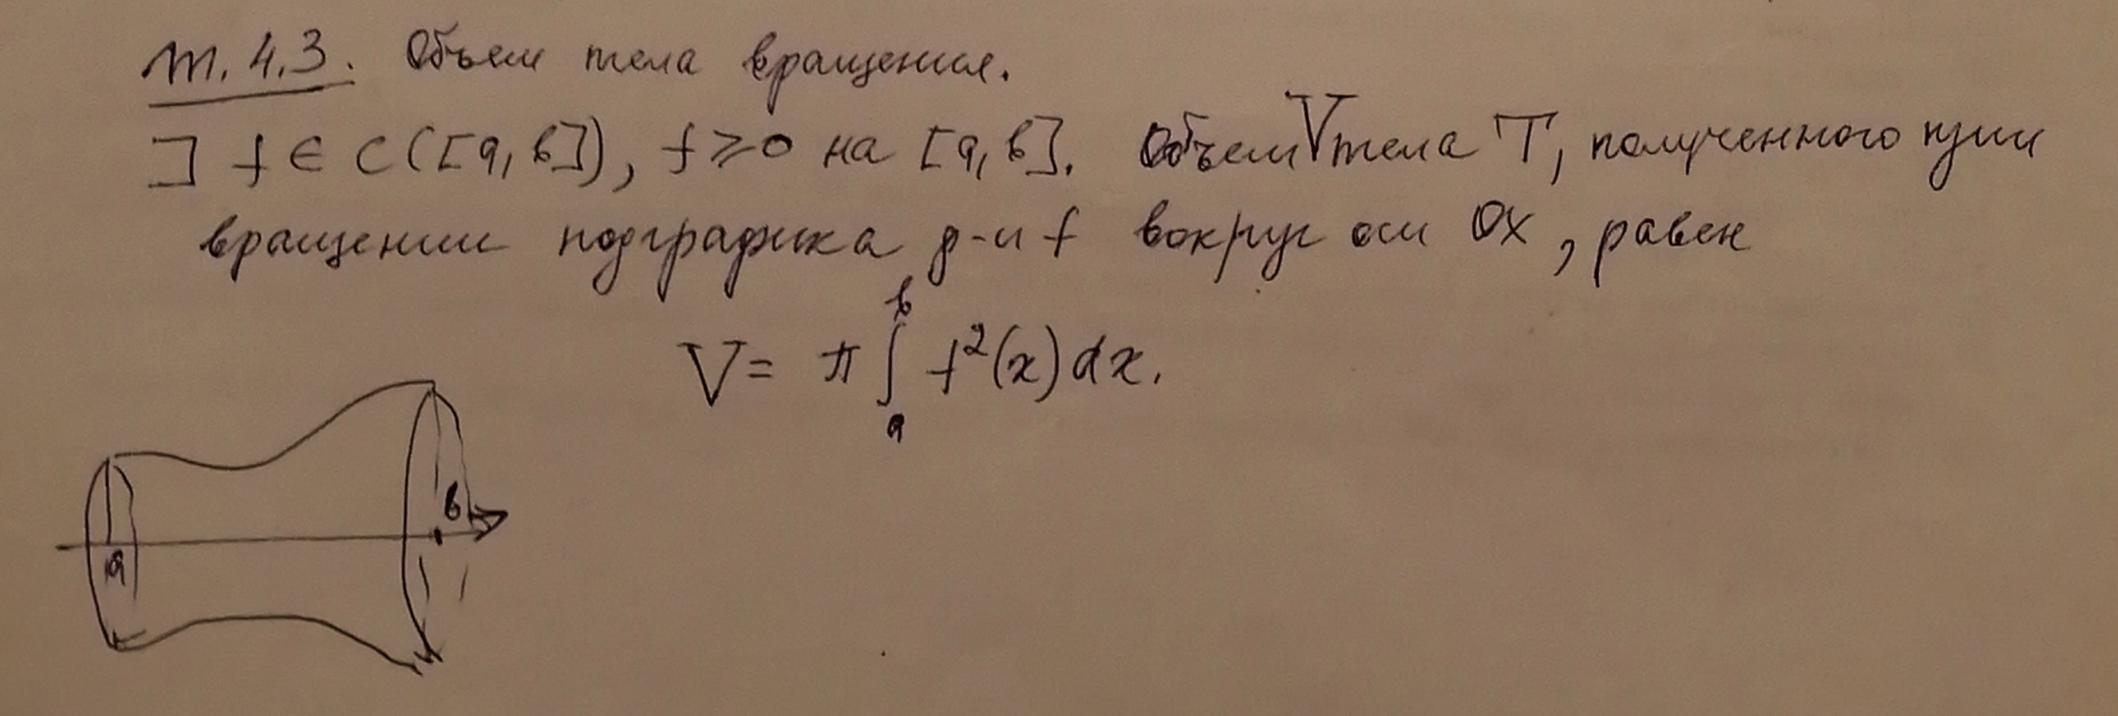 т. 4.3. Объем тела вращения.
] f ∈ C([a, b]), f ⩾ 0 на [a, b]. Объем V тела T, полученного при
вращении подграфика ф-и f вокруг оси OX, равен
V = π ∫_a^b f²(x) dx.
b
a